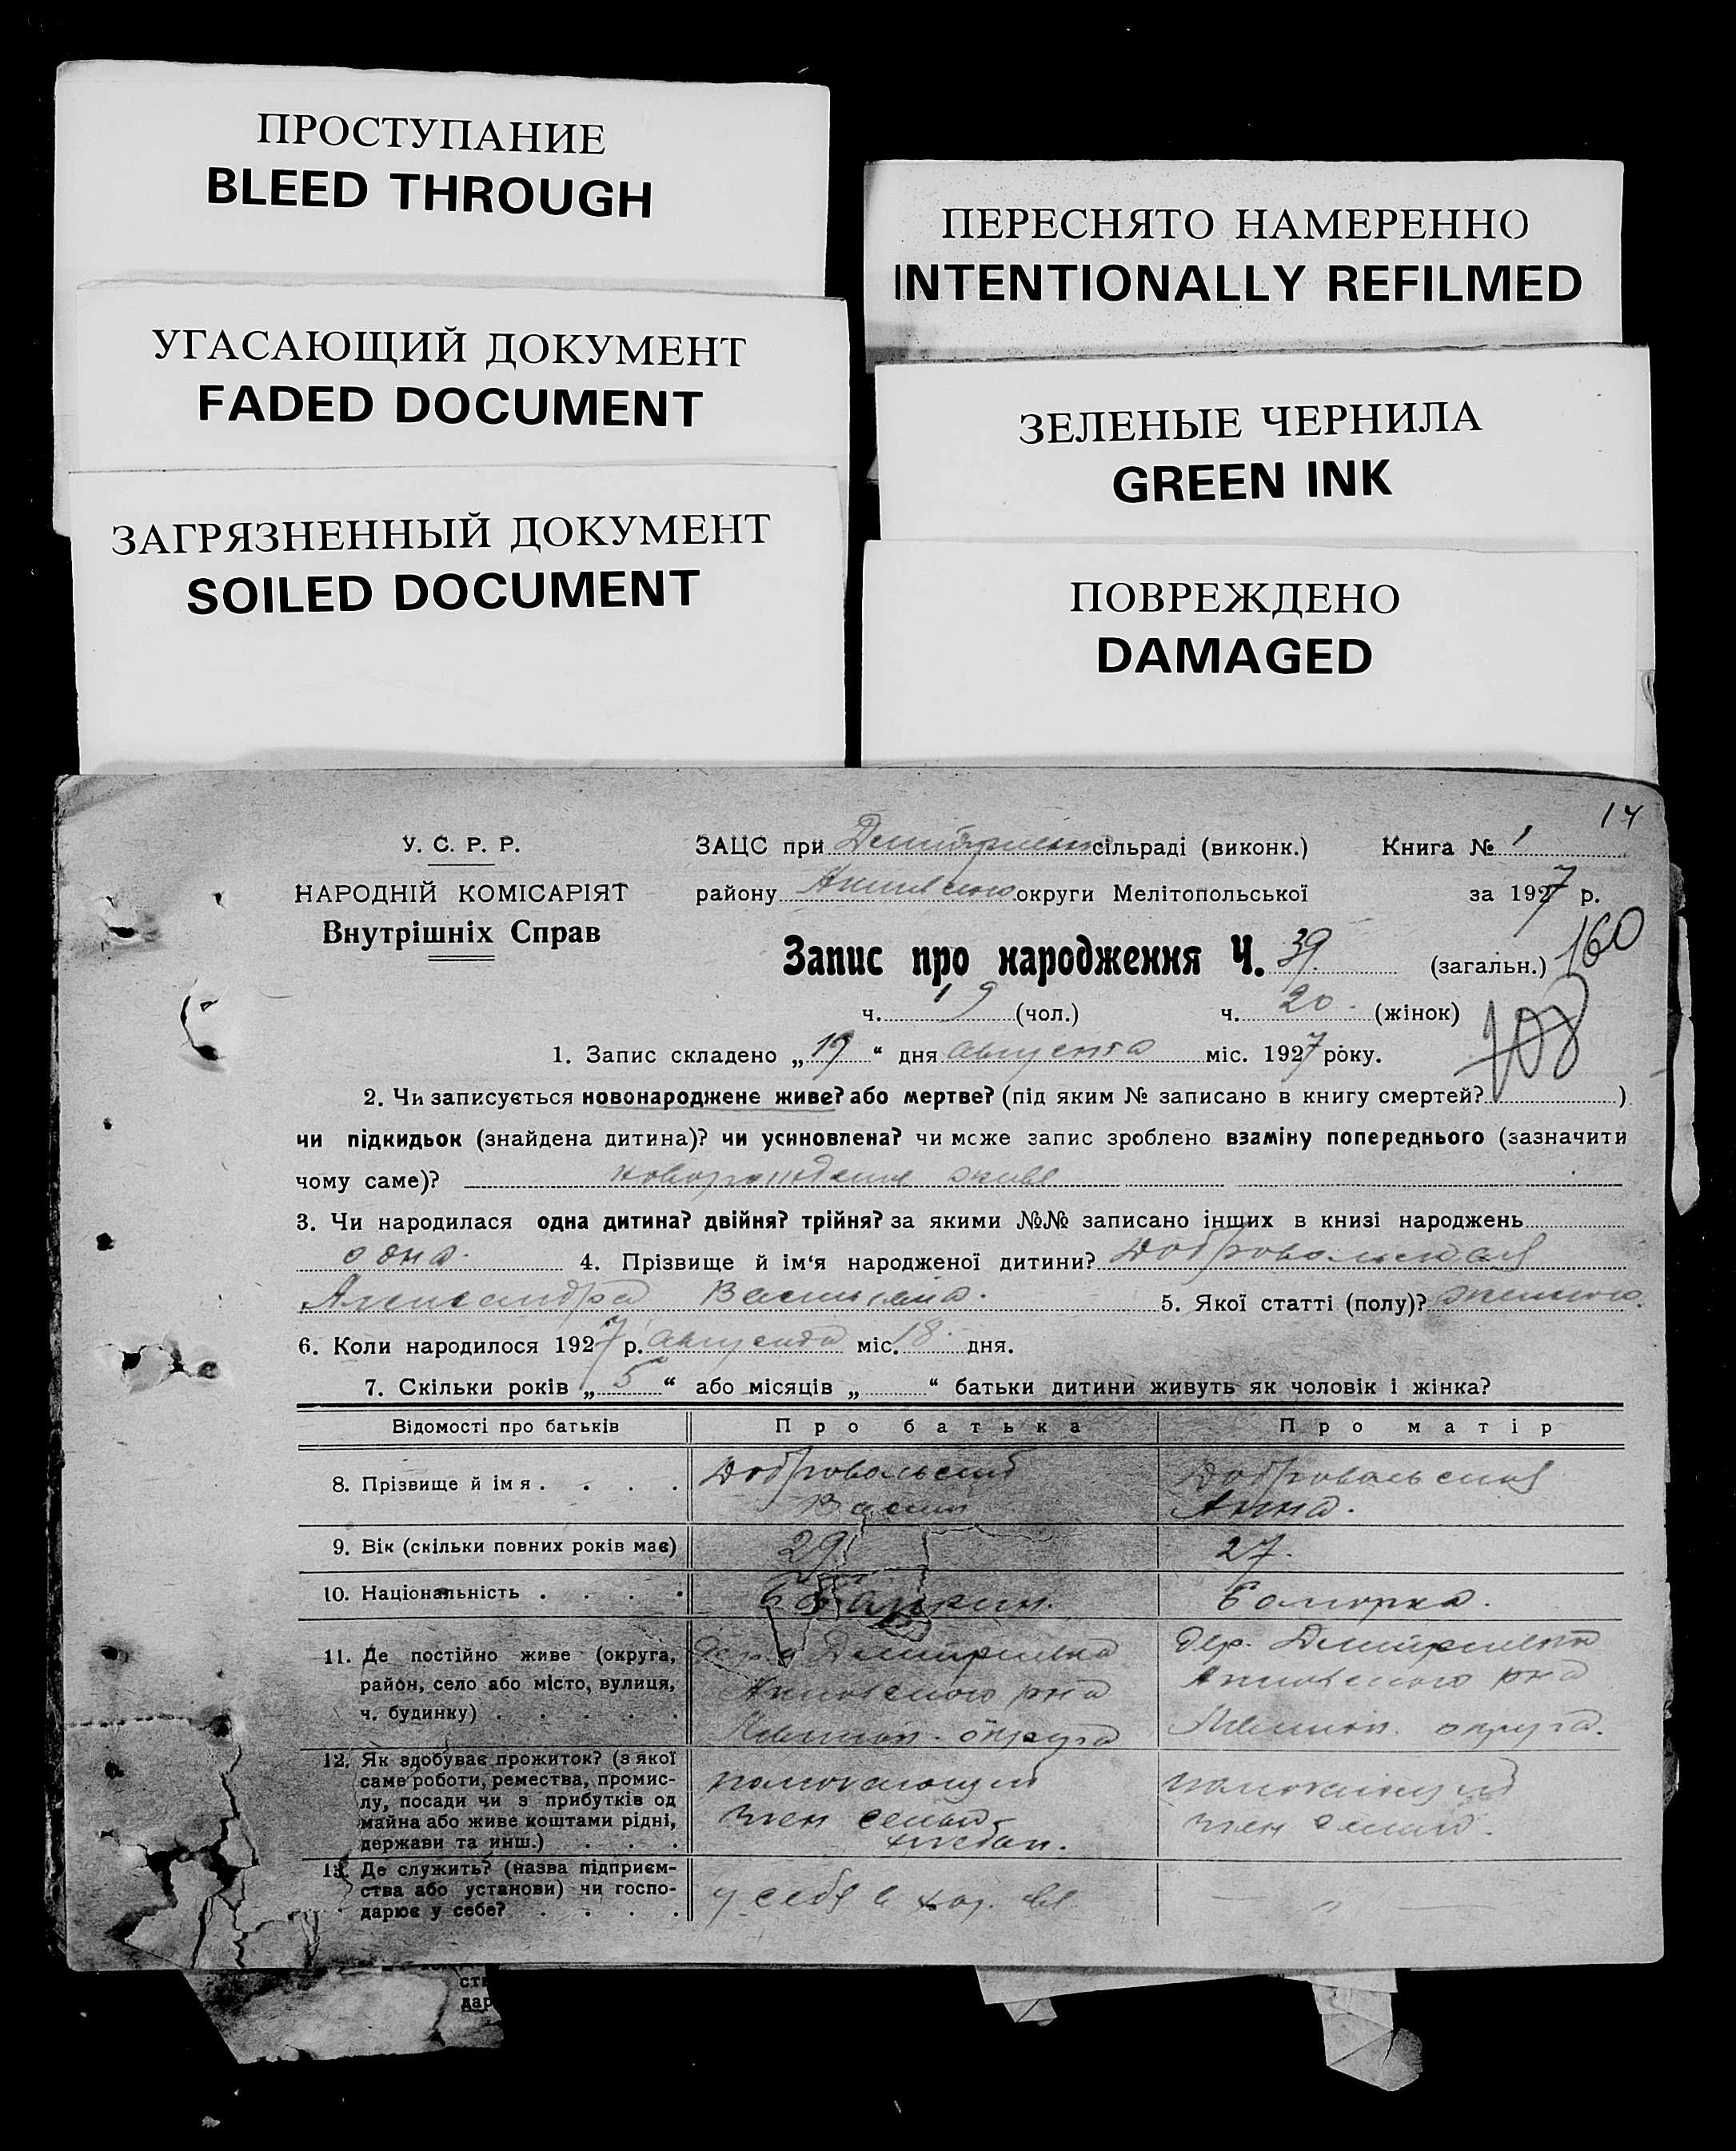 ПРОСТУПАНИЕ
BLEED THROUGH
УГАСАЮЩИЙ ДОКУМЕНТ
FADED DOCUMENT
ЗАГРЯЗНЕННЫЙ ДОКУМЕНТ
SOILED DOCUMENT
ПЕРЕСНЯТО НАМЕРЕННО
INTENTIONALLY REFILMED
ЗЕЛЕНЫЕ ЧЕРНИЛА
GREEN INK
ПОВРЕЖДЕНО
DAMAGED
У. С. Р. Р.
НАРОДНІЙ КОМІСАРІЯТ
Внутрішніх Справ
ЗАЦС при сільраді (виконк.) Книга № 1
району округи Мелітопольської за 1927 р.
Запис про народження Ч. 39 (загальн.) 160
ч. 19 (чол.) ч. 20. (жінок)
108
1. Запис складено „19“ дня августа міс. 1927 року.
2. Чи записується новонароджене живе? або мертве? (під яким № записано в книгу смертей? )
чи підкидьок (знайдена дитина)? чи усиновлена? чи може запис зроблено взаміну попереднього (зазначити
чому саме)? живе
3. Чи народилася одна дитина? двійня? трійня? за якими №№ записано інших в книзі народжень
одна. 4. Прізвище й ім‘я народженої дитини? Добровольская
Александра Васильевна. 5. Якої статті (полу)? женского.
6. Коли народилося 1927 р. августа міс. 18 дня.
7. Скільки років „5“ або місяців „ “ батьки дитини живуть як чоловік і жінка?
Відомості про батьків Про батька Про матір
8. Прізвище й ім я . . . . Добровольский Добровольская
Анна.
9. Вік (скільки повних років має) 29 27.
10. Національність . . . . болгарка.
11. Де постійно живе (округа, Дмитриевка дер. Дмитриевка
район, село або місто, вулиця, рна рна
ч. будинку) . . . . . округа округа.
12. Як здобуває прожиток? (з якої
саме роботи, ремества, промис- помогающий помогающий
лу, посади чи з прибутків од
майна або живе коштами рідні, член семьи член семьи.
держави та инш.) . . . хлебоп.
13. Де служить? (назва підприєм-
ства або установи) чи госпо- у себя в „
дарює у себе? . . . .